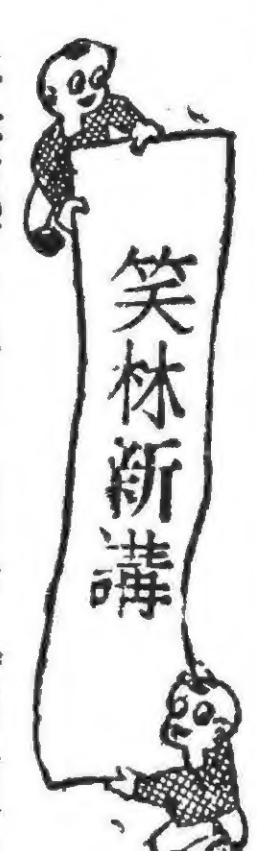 笑林新講